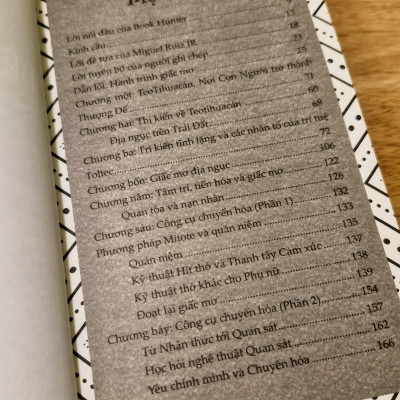 Lời nói đầu của Book Hunter 7
Kính cầu 13
Lời đề tựa của Miguel Ruiz JR. 18
Lời tuyên bố của người ghi chép 23
Dẫn lối: Hành trình giấc mơ 25
Chương một: Teotihuacán, Nơi Con Người trở thành
Thượng Đế 31
Chương hai: Thị kiến về Teotihuacán 60
Địa ngục trên Trái Đất 68
Chương ba: Tri kiến tĩnh lặng và các nhân tố của trí tuệ
Toltec 72
Chương bốn: Giấc mơ địa ngục 106
Chương năm: Tâm trí, tiến hóa và giấc mơ 122
Quan tòa và nạn nhân 128
Chương sáu: Công cụ chuyển hóa (Phần 1) 132
Phương pháp Mitote và quán niệm 133
Quán niệm 135
Kỹ thuật Hít thở và Thanh tẩy Cảm xúc 137
Kỹ thuật thở khác cho Phụ nữ 138
Đoạt lại giấc mơ 139
Chương bảy: Công cụ chuyển hóa (Phần 2) 154
Từ Nhận thức tới Quan sát 157
Học hỏi nghệ thuật Quan sát 162
Yêu chính mình và Chuyển hóa 166